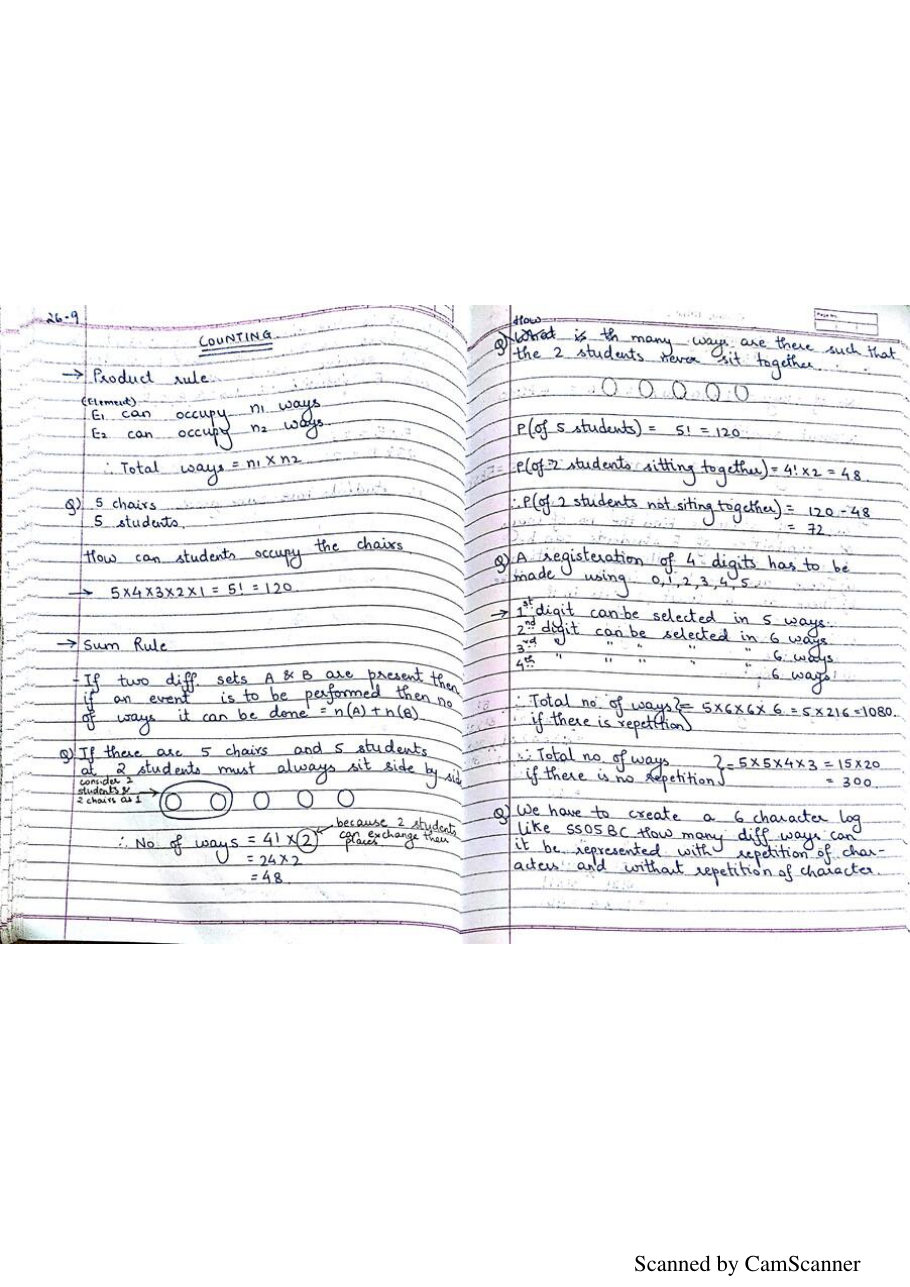 26-9
COUNTING
→ Product rule
(Element)
E1 can occupy n1 ways
E2 can occupy n2 ways
∴ Total ways = n1 × n2
Q) 5 chairs
5 students.
How can students occupy the chairs
→ 5×4×3×2×1 = 5! = 120
→ Sum Rule
- If two diff. sets A & B are present then
if an event is to be performed then no
of ways it can be done = n(A) + n(B)
Q) If there are 5 chairs and 5 students
at 2 students must always sit side by side
consider 2
students &
2 chairs as 1
∴ No. of ways = 4! × 2 ← because 2 students
can exchange their
places
= 24×2
= 48
How
Q) What is th many ways are there such that
the 2 students never sit together.
P(of 5 students) = 5! = 120
P(of 2 students sitting together) = 4! × 2 = 48
∴ P(of 2 students not siting together) = 120 - 48
= 72
Q) A registeration of 4 digits has to be
made using 0,1,2,3,4,5.
→ 1st digit can be selected in 5 ways.
2nd digit can be selected in 6 ways
3rd " " " " " 6 ways
4th " " " " " 6 ways
∴ Total no. of ways } = 5×6×6×6 = 5×216 = 1080.
if there is repetition}
∴ Total no. of ways } = 5×5×4×3 = 15×20
if there is no repetition} = 300
Q) We have to create a 6 character log
like SS05BC How many diff ways can
it be represented with repetition of char-
acters and without repetition of character.
Scanned by CamScanner